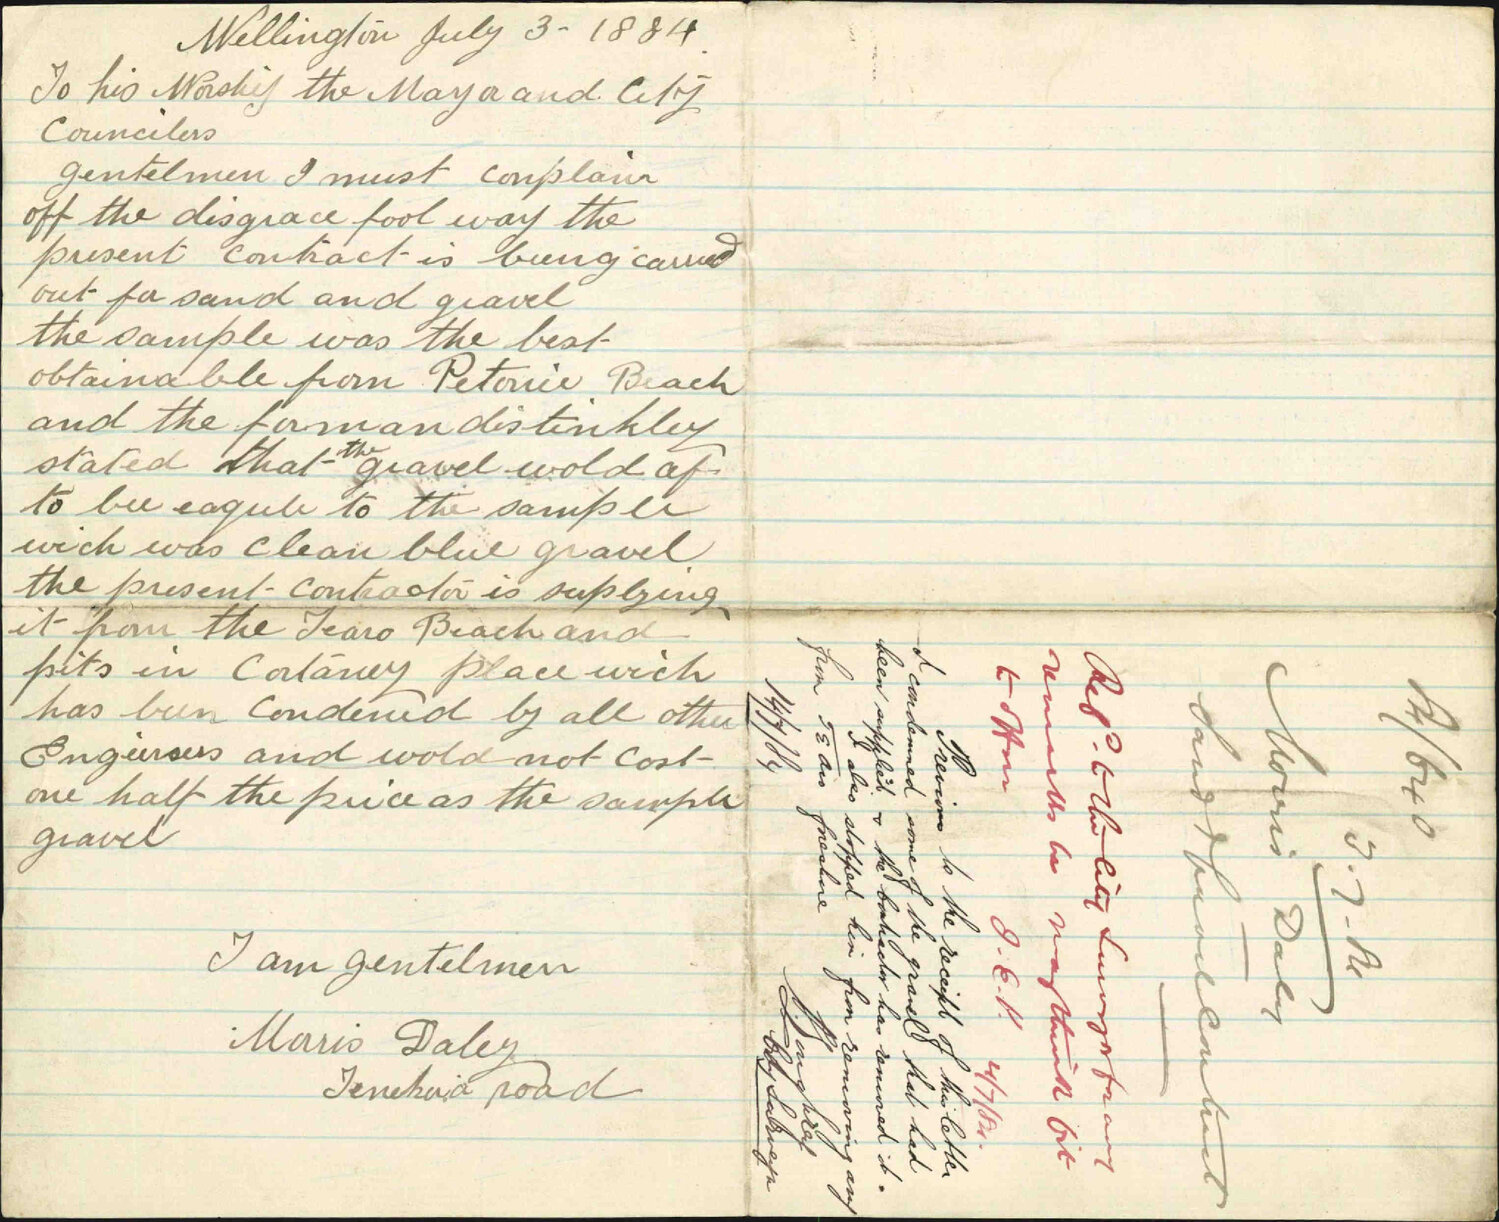 Wellington July 3 - 1884
To his Worship the Mayor and City
Councilers
gentelmen I must conplain
off the disgrace fool way the
present contract is being carried
out for sand and gravel
the sample was the best
obtainable from Petonie Beach
and the forman distinkley
stated that the gravel wold af
to bee eaqule to the sample
wich was clean blue gravel
the present contractor is suplying
it from the Tearo Beach and
pits in Cortaney place wich
has been Condened by all other
Engineers and wold not cost
one half the price as the sample
gravel
I am gentelmen
Morris Daley
Tenekuia road
84/640
Morris Daley
Sand & Gravel Contract
Refd. to the City Surveyor for any
remarks he may think fit
to offer
4/7/84.
Previous to the receipt of this letter
I condemned some of the gravel that had
been supplied & the contractor has removed it.
I also stopped him from removing any
from Te Aro foreshore
City Surveyor
14/7/84